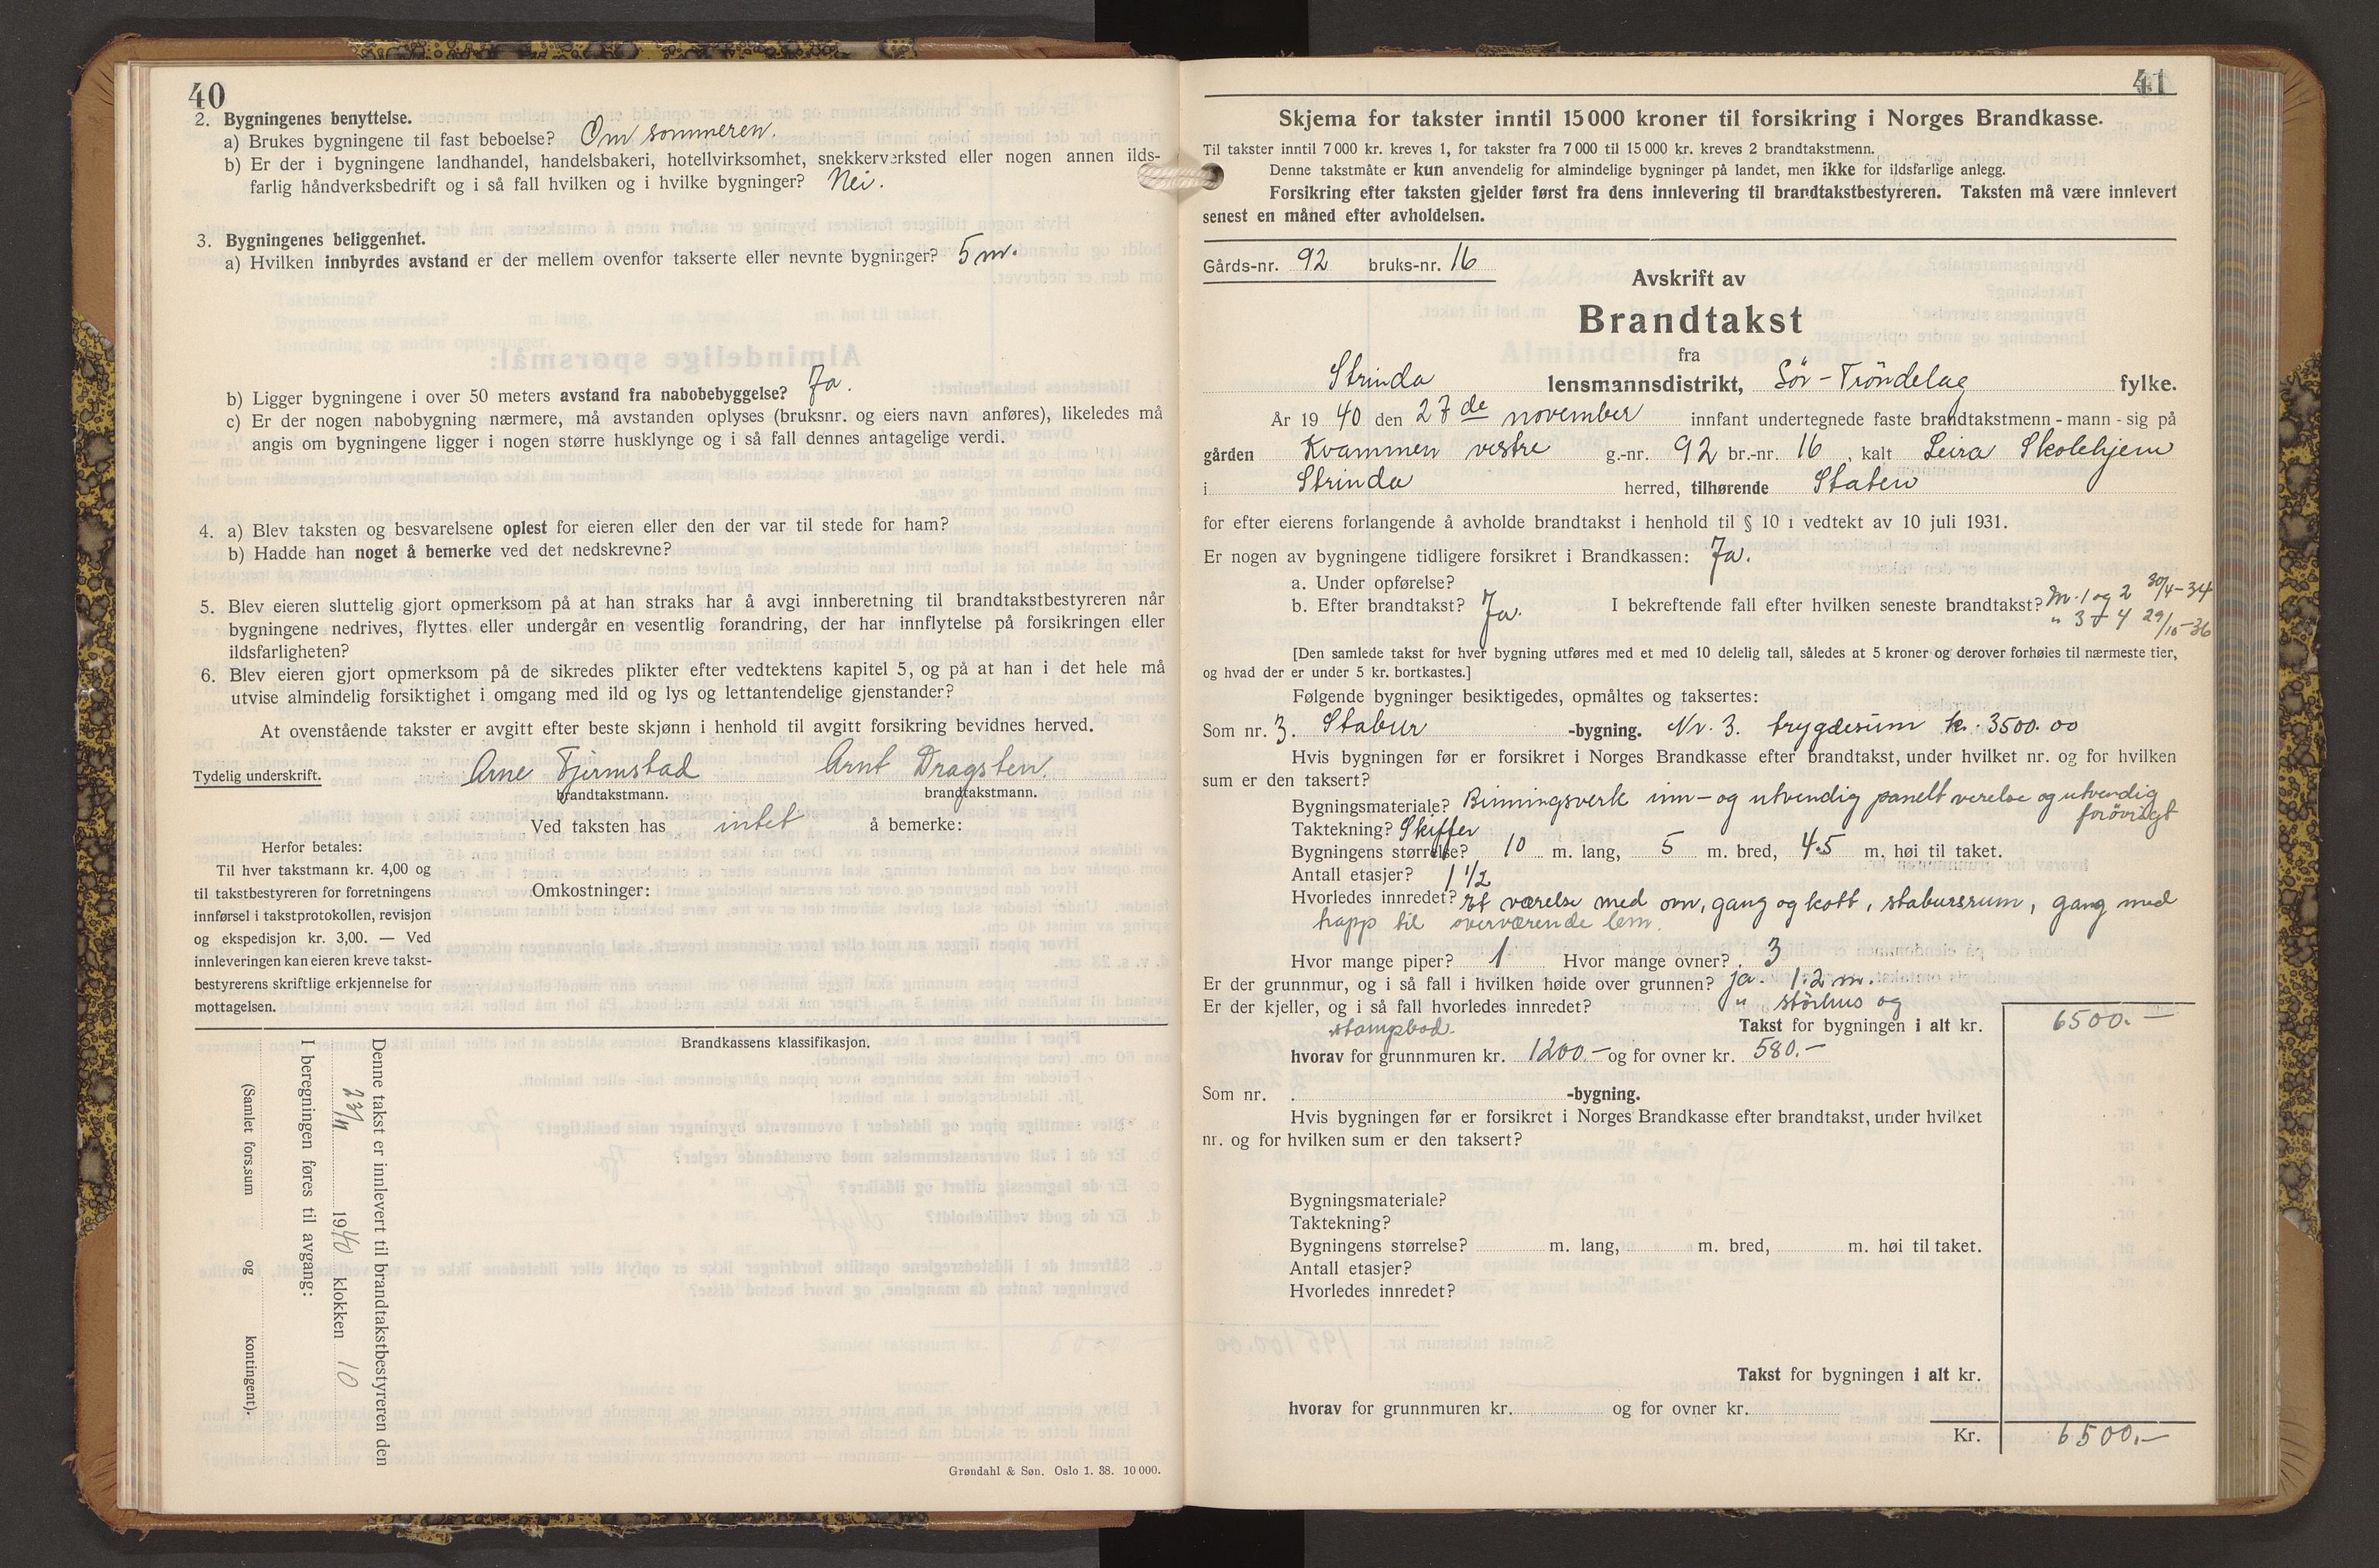 40
2. Bygningenes benyttelse.
a) Brukes bygningene til fast beboelse? Om sommeren.
b) Er der i bygningene landhandel, handelsbakeri, hotellvirksomhet, snekkerverksted eller nogen annen ilds-
farlig håndverksbedrift og i så fall hvilken og i hvilke bygninger? Nei.
3. Bygningenes beliggenhet.
a) Hvilken innbyrdes avstand er der mellem ovenfor takserte eller nevnte bygninger? 5 m.
b) Ligger bygningene i over 50 meters avstand fra nabobebyggelse? Ja.
c) Er der nogen nabobygning nærmere, må avstanden oplyses (bruksnr. og eiers navn anføres), likeledes må
angis om bygningene ligger i nogen større husklynge og i så fall dennes antagelige verdi.
4. a) Blev taksten og besvarelsene oplest for eieren eller den der var til stede for ham?
b) Hadde han noget å bemerke ved det nedskrevne?
5. Blev eieren sluttelig gjort opmerksom på at han straks har å avgi innberetning til brandtakstbestyreren når
bygningene nedrives, flyttes eller undergår en vesentlig forandring, der har innflytelse på forsikringen eller
ildsfarligheten?
6. Blev eieren gjort opmerksom på de sikredes plikter efter vedtektens kapitel 5, og på at han i det hele må
utvise almindelig forsiktighet i omgang med ild og lys og lettantendelige gjenstander?
At ovenstående takster er avgitt efter beste skjønn i henhold til avgitt forsikring bevidnes herved.
Tydelig underskrift. Arne Fjermstad Arnt Dragsten.
brandtakstmann. brandtakstmann.
Ved taksten has intet å bemerke:
Herfor betales:
Til hver takstmann kr. 4,00 og
til takstbestyreren for forretningens
innførsel i takstprotokollen, revisjon
og ekspedisjon kr. 3,00. — Ved
innleveringen kan eieren kreve takst-
bestyrerens skriftlige erkjennelse for
mottagelsen.
Omkostninger:
Brandkassens klassifikasjon.
Denne takst er innlevert til brandtakstbestyreren den
23/11 1940 klokken 10
I beregningen føres til avgang:
(Samlet fors.sum og kontingent).
Grøndahl & Søn. Oslo 1. 38. 10 000.
41
Skjema for takster inntil 15 000 kroner til forsikring i Norges Brandkasse.
Til takster inntil 7 000 kr. kreves 1, for takster fra 7 000 til 15 000 kr. kreves 2 brandtakstmenn.
Denne takstmåte er kun anvendelig for almindelige bygninger på landet, men ikke for ildsfarlige anlegg.
Forsikring efter taksten gjelder først fra dens innlevering til brandtakstbestyreren. Taksten må være innlevert
senest en måned efter avholdelsen.
Gårds-nr. 92 bruks-nr. 16
Avskrift av
Brandtakst
fra
Strinda lensmannsdistrikt, Sör-Tröndelag fylke.
År 1940 den 27de november innfant undertegnede faste brandtakstmenn - mann - sig på
gården Kvammen vestre g.-nr. 92 br.-nr. 16, kalt Leira Skolehjem
i Strinda herred, tilhørende Staten
for efter eierens forlangende å avholde brandtakst i henhold til § 10 i vedtekt av 10 juli 1931.
Er nogen av bygningene tidligere forsikret i Brandkassen: Ja.
a. Under opførelse?
b. Efter brandtakst? Ja. I bekreftende fall efter hvilken seneste brandtakst? Nr. 1 og 2 30/4-34
" 3 + 4 29/10-36
[Den samlede takst for hver bygning utføres med et med 10 delelig tall, således at 5 kroner og derover forhøies til nærmeste tier,
og hvad der er under 5 kr. bortkastes.]
Følgende bygninger besiktigedes, opmåltes og taksertes:
Som nr. 3. Stabur -bygning. Nr. 3. trygdesum kr. 3500.00
Hvis bygningen før er forsikret i Norges Brandkasse efter brandtakst, under hvilket nr. og for hvilken
sum er den taksert?
Bygningsmateriale? Binningsverk inn- og utvendig panelt værelse og utvendig
forövrigt
Taktekning? Skiffer
Bygningens størrelse? 10 m. lang, 5 m. bred, 4.5 m. høi til taket.
Antall etasjer? 1 1/2
Hvorledes innredet? Et værelse med ovn, gang og kott, stabursrum, gang med
trapp til overværende lem.
Hvor mange piper? 1 Hvor mange ovner? 3
Er der grunnmur, og i så fall i hvilken høide over grunnen? ja. 1.2 m.
Er der kjeller, og i så fall hvorledes innredet? " störhus og
stampbad.
Takst for bygningen i alt kr. 6500.—
hvorav for grunnmuren kr. 1200.— og for ovner kr. 580.—
Som nr. . -bygning.
Hvis bygningen før er forsikret i Norges Brandkasse efter brandtakst, under hvilket
nr. og for hvilken sum er den taksert?
Bygningsmateriale?
Taktekning?
Bygningens størrelse? m. lang, m. bred, m. høi til taket.
Antall etasjer?
Hvorledes innredet?
Takst for bygningen i alt kr.
hvorav for grunnmuren kr. og for ovner kr.
Kr. 6500.—